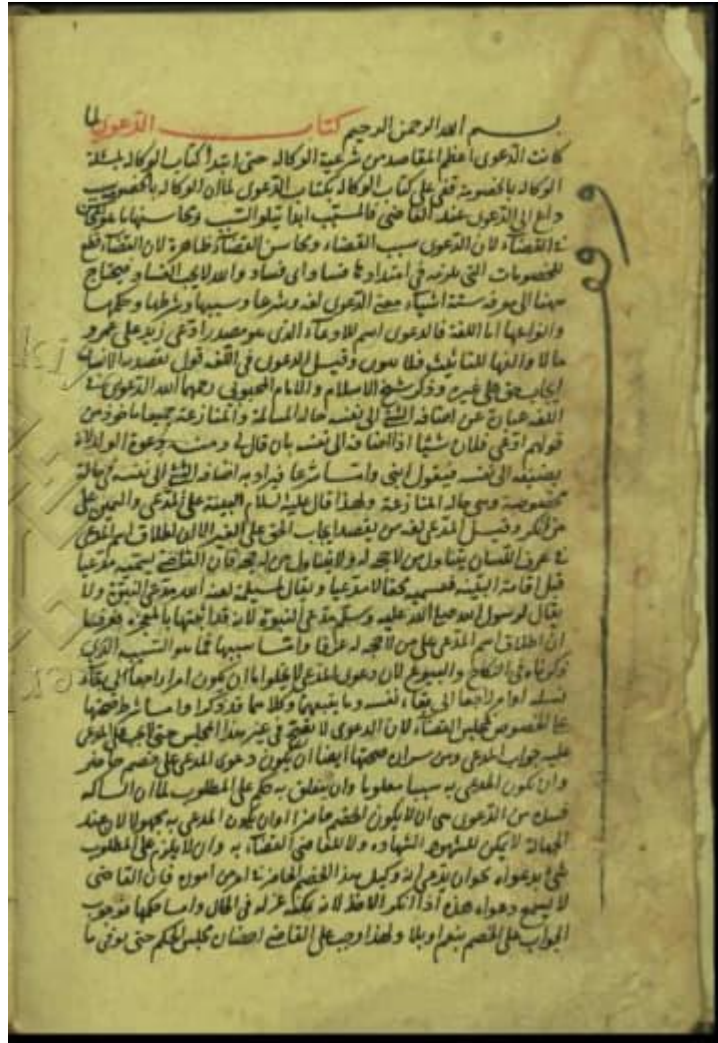 بسم الله الرحمن الرحيم كتاب الدعوى لما
كانت الدعوى اعظم المقاصد من شرعية الوكالة حتى ابتدأ كتاب الوكالة بمسئلة
الوكالة بالخصومة قفى على كتاب الوكالة بكتاب الدعوى لما ان الوكالة بالخصومة
داع الى الدعوى عند القاضى فالمسبب ابدا يتلو السبب ومحاسنها
فى القضاء لان الدعوى سبب القضاء ومحاسن القضاء ظاهرة لان القضاء قطع
للخصومات التى يلزم فى امتدادها فساد اى فساد والله لا يحب الفساد فيحتاج
ههنا الى معرفة ستة اشياء معنى الدعوى لغة وشرعا وسببها وشرطها وحكمها
وانواعها اما اللغة فالدعوى اسم للادعاء الذى هو مصدر ادعى زيد على عمرو
مالا والفها للتانيث فلا ينون وقيل الدعوى فى اللغة قول يقصد به الانسان
ايجاب حق على غيره وذكر شيخ الاسلام والامام المحبوبى رحمهما الله الدعوى فى
اللغة عبارة عن اضافة الشئ الى نفسه حالة المسالمة والمنازعة جميعا ماخوذ من
قولهم ادعى فلان شيئا اذا اضافه الى نفسه بان قال لى ومنه دعوة الولد لانه
يضيفه الى نفسه فيقول ابنى واما شرعا فيراد به اضافة الشئ الى نفسه فى حالة
مخصوصة وهى حالة المنازعة ولهذا قال عليه السلام البينة على المدعى واليمين على
من انكر وقيل المدعى لغة من يقصد ايجاب الحق على الغير الا ان اطلاق اسم المدعى
فى عرف اللسان يتناول من لا حجة له ولا يتناول من له حجة فان القاضى يسميه مدعيا
قبل اقامة البينة فيسميه محقا لا مدعيا ويقال لمسيلمة لعنه الله مدعى النبوة ولا
يقال لرسول الله صلى الله عليه وسلم مدعى النبوة لانه قد اثبتها بالمعجزة فعرفنا
ان اطلاق اسم المدعى على من لا حجة له عرفا واما سببها فما هو السبب الذى
ذكرناه فى النكاح والبيوع لان دعوى المدعى لا يخلو اما ان يكون امرا راجعا الى بقاء
نسله او امرا راجعا الى بقاء نفسه وما يتبعهما وكلاهما قد ذكرا واما شرط صحتها
على الخصوص فمجلس القضاء لان الدعوى لا يصح فى غير هذا المجلس حتى لا يجب على المدعى
عليه جواب المدعى ومن شرائط صحتها ايضا ان يكون دعوى المدعى على خصم حاضر
وان يكون المدعى به شيئا معلوما وان يتعلق به حكم على المطلوب لما ان
الفاسدة من الدعوى هى ان لا يكون الخصم حاضرا او ان يكون المدعى به مجهولا لان عند
الجهالة لا يمكن للشهود الشهادة ولا للقاضى القضاء به وان لا يلزم على المطلوب
شئ بدعواه نحو ان يدعى انه وكيل هذا الخصم الحاضر فى امر من اموره فان القاضى
لا يسمع دعواه هذه اذا انكر الاخر لانه يمكنه عزله فى الحال واما حكمها فوجوب
الجواب على الخصم بنعم او بلا ولهذا وجب على القاضى احضاره مجلس الحكم حتى يوفى ما